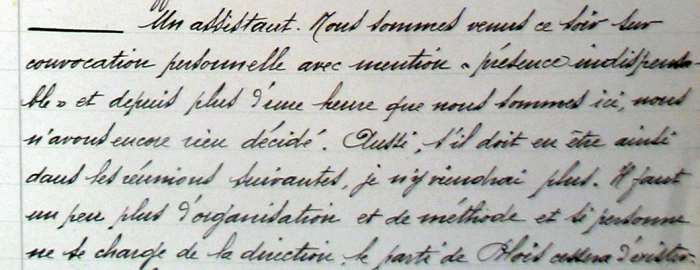 Un assistant. Nous sommes venus ce soir sur
convocation personnelle avec mention « présence indispensa-
ble » et depuis plus d'une heure que nous sommes ici, nous
n'avons encore rien décidé. Aussi, s'il doit en être ainsi
dans les réunions suivantes, je n'y viendrai plus. Il faut
un peu plus d'organisation et de méthode et si personne
ne se charge de la direction, le parti de Blois cessera d'exister.